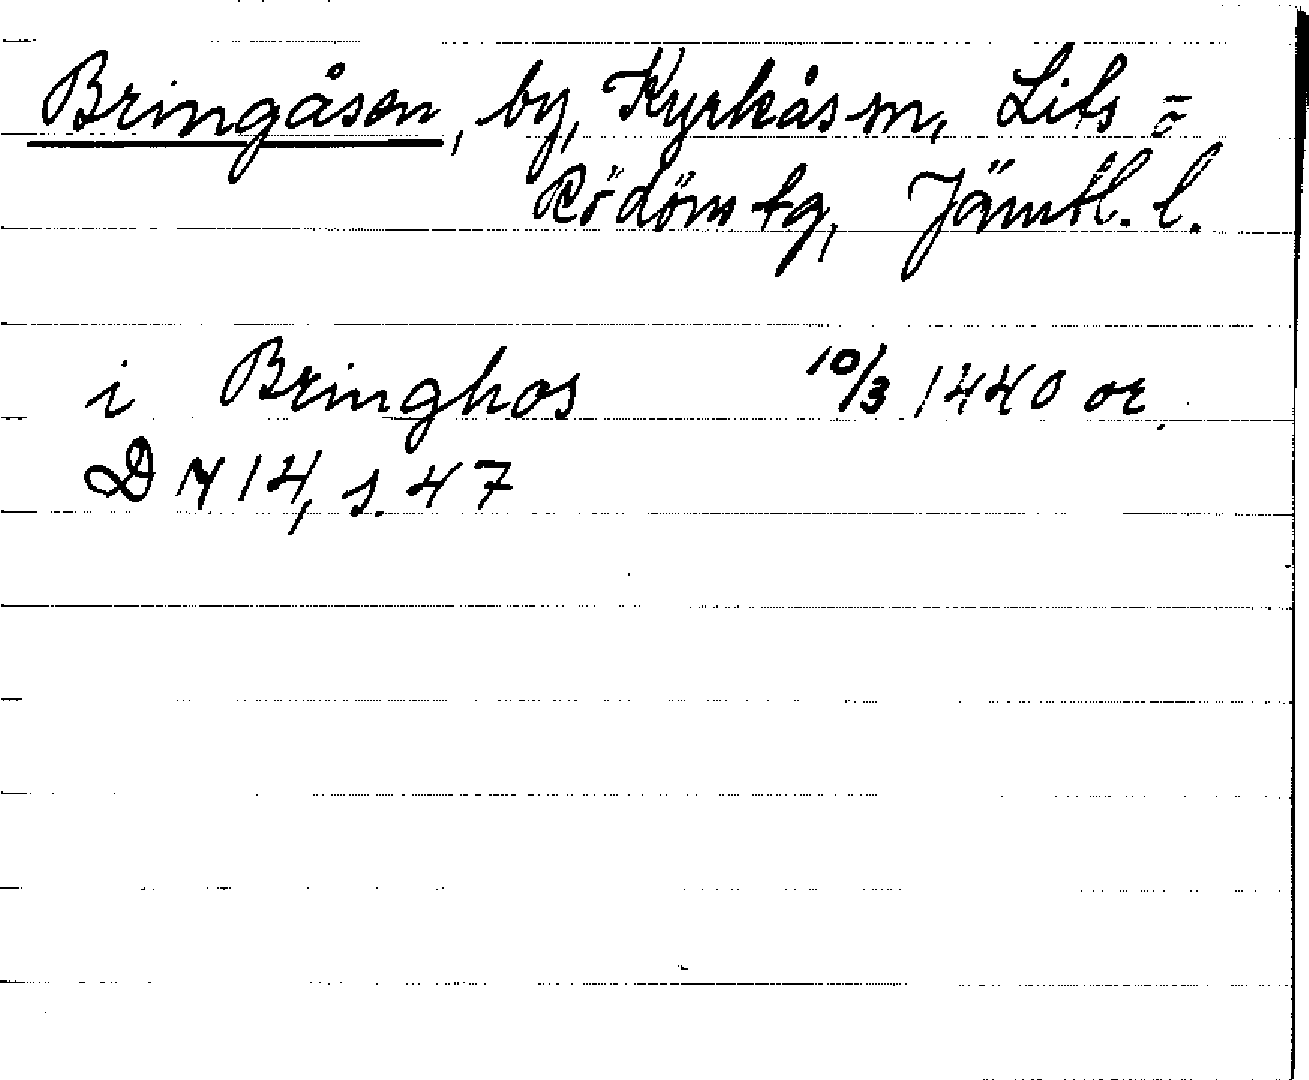 Bringåsen, by, Kyrkås sn, Lits o
Rödöns tg, Jämtl. l.
i Bringhos 10/3 1440 or.
DN 14, s. 47